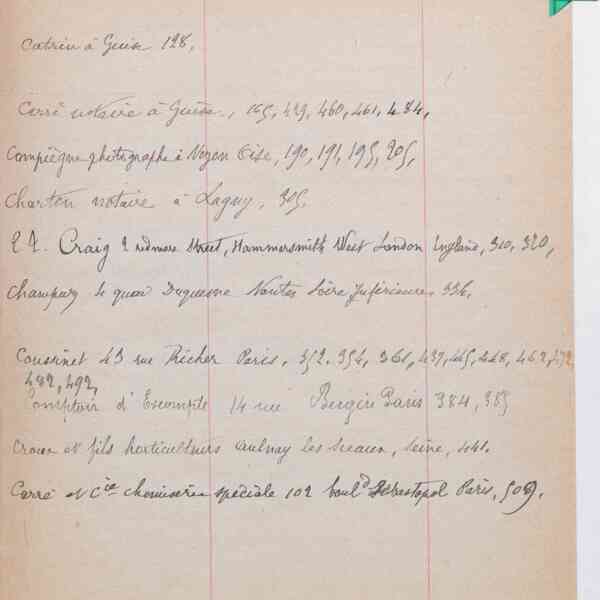 Catrin à Guise 128,
Carré notaire à Guise, 165, 429, 460, 461, 484,
Compiègne photographe à Noyon Oise, 190, 191, 195, 205,
Charton notaire à Lagny, 305,
E. T. Craig 2 redmore Street, Hammersmith West London England, 310, 320,
Champury 4 quai Duquesne Nantes Loire Inférieure, 336,
Cousinet 43 rue Richer Paris, 352, 354, 361, 437, 445, 448, 462, 472,
482, 492,
Comptoir d'Escompte 14 rue Bergère Paris 384, 385
Croux et fils horticulteurs aulnay les sceaux, seine, 441.
Carré et Cie chemiserie spéciale 102 bould Sébastopol Paris, 509,